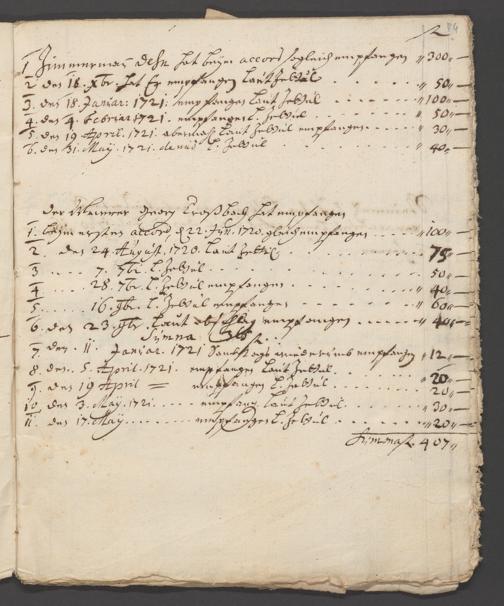 1 Zimmerman Dehn hat beým accord sogleich empfangen " 300 "
2 den 18. Xbr. hat Er empfangen laut Zettul . . . " 50 "
3. den 18. Januar: 1721. empfangen laut Zettul . . . " 100 "
4. den 4. Februar: 1721. empfangen l. Zettul . . . " 50 "
5. den 19 April. 1721. abermahl laut Zettul empfangen . . . " 30 "
6. den 31. Maÿ. 1721. l. Zettul . . . " 40 "
Der Maurer Georg Troßbach hat empfangen
1. beým ersten accord d. 22. 1720. gleich empfangen . . . " 100 "
2. den 24. August. 1720. laut Zettul . . . 75
3 . . . 7. 7br. l. Zettul . . . 50 "
4 . . . 28. 7br. l. Zettul empfangen . . . 40 "
5 . . . 16. l. Zettul empfangen . . . " 60 "
6. den 23 laut empfangen . . . " 40 "
Summa
7. den 11. Januar. 1721 empfangen " 12 "
8. den 5. April. 1721. empfangen laut Zettul . . . " 20 "
9. den 19 April = empfangen l. Zettul . . . 20 "
10. den 3. Maÿ. 1721. . . . empfang laut Zettul . . . " 30 "
11. den 17. Maÿ . . . empfangen l. Zettul . . . " 20 "
Summa 407 "